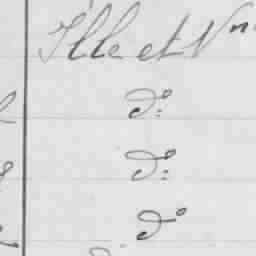 Ille et Vn
d°
d°
d°